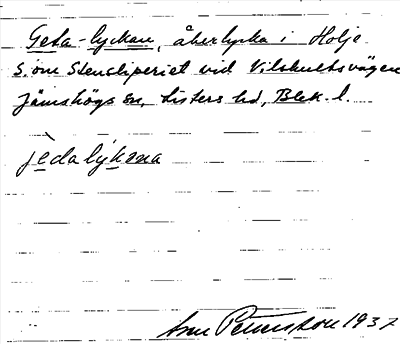 Geta-lyckan, åkerlycka i Holje
S. om Stensliperiet vid Vilshultsvägen
Jämshögs sn, Listers hd, Blek. l.
jèdalýkana
Pettersson 1937